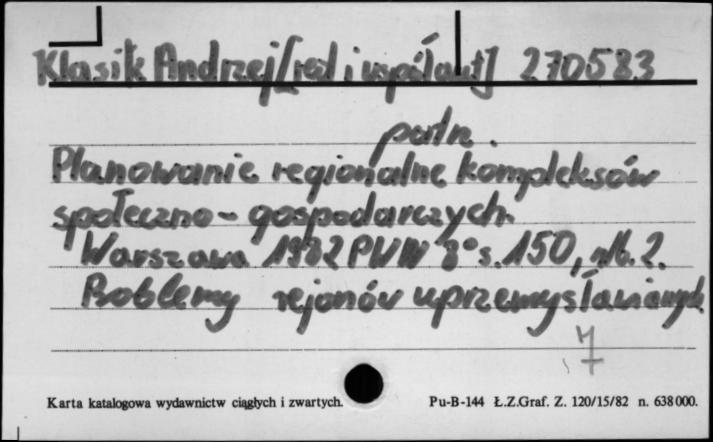 Klasik Andrzej [red i współaut] 270583
podn.
Planowanie regionalne kompleksów
społeczno-gospodarczych.
Warszawa 1982 PWN 8° s. 150, nlb. 2.
Problemy rejonów uprzemysławianych
7
Karta katalogowa wydawnictw ciągłych i zwartych. Pu-B-144 Ł.Z.Graf. Z. 120/15/82 n. 638000.